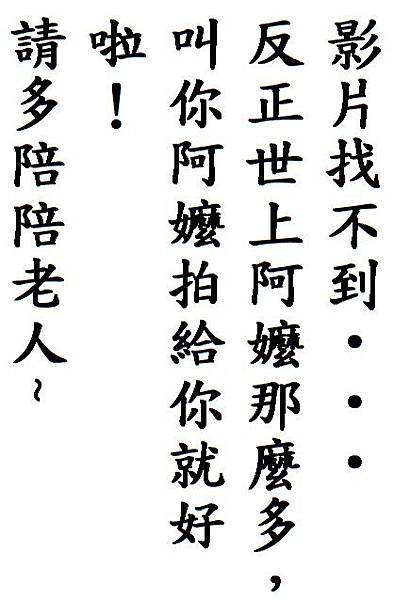 影片找不到・・・
反正世上阿嬤那麼多，
叫你阿嬤拍給你就好
啦！
請多陪陪老人~